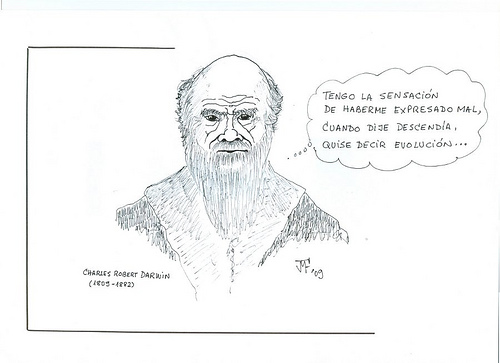 TENGO LA SENSACIÓN
DE HABERME EXPRESADO MAL,
CUANDO DIJE DESCENDÍA,
QUISE DECIR EVOLUCIÓN...
CHARLES ROBERT DARWIN
(1809-1882)
JMF '09